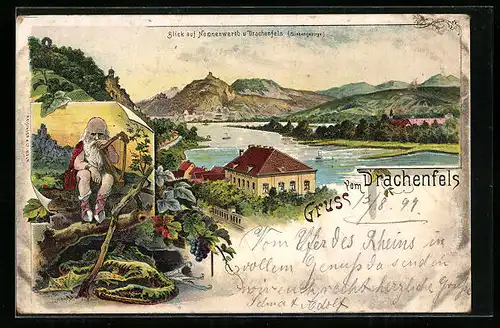 Blick auf Nonnenwerth u Drachenfels (Siebengebirge)
Gruss vom Drachenfels
13/8. 99.
Vom Ufer des Rheins in
vollem Genuß da senden
wir recht herzliche Grüße
Adolf